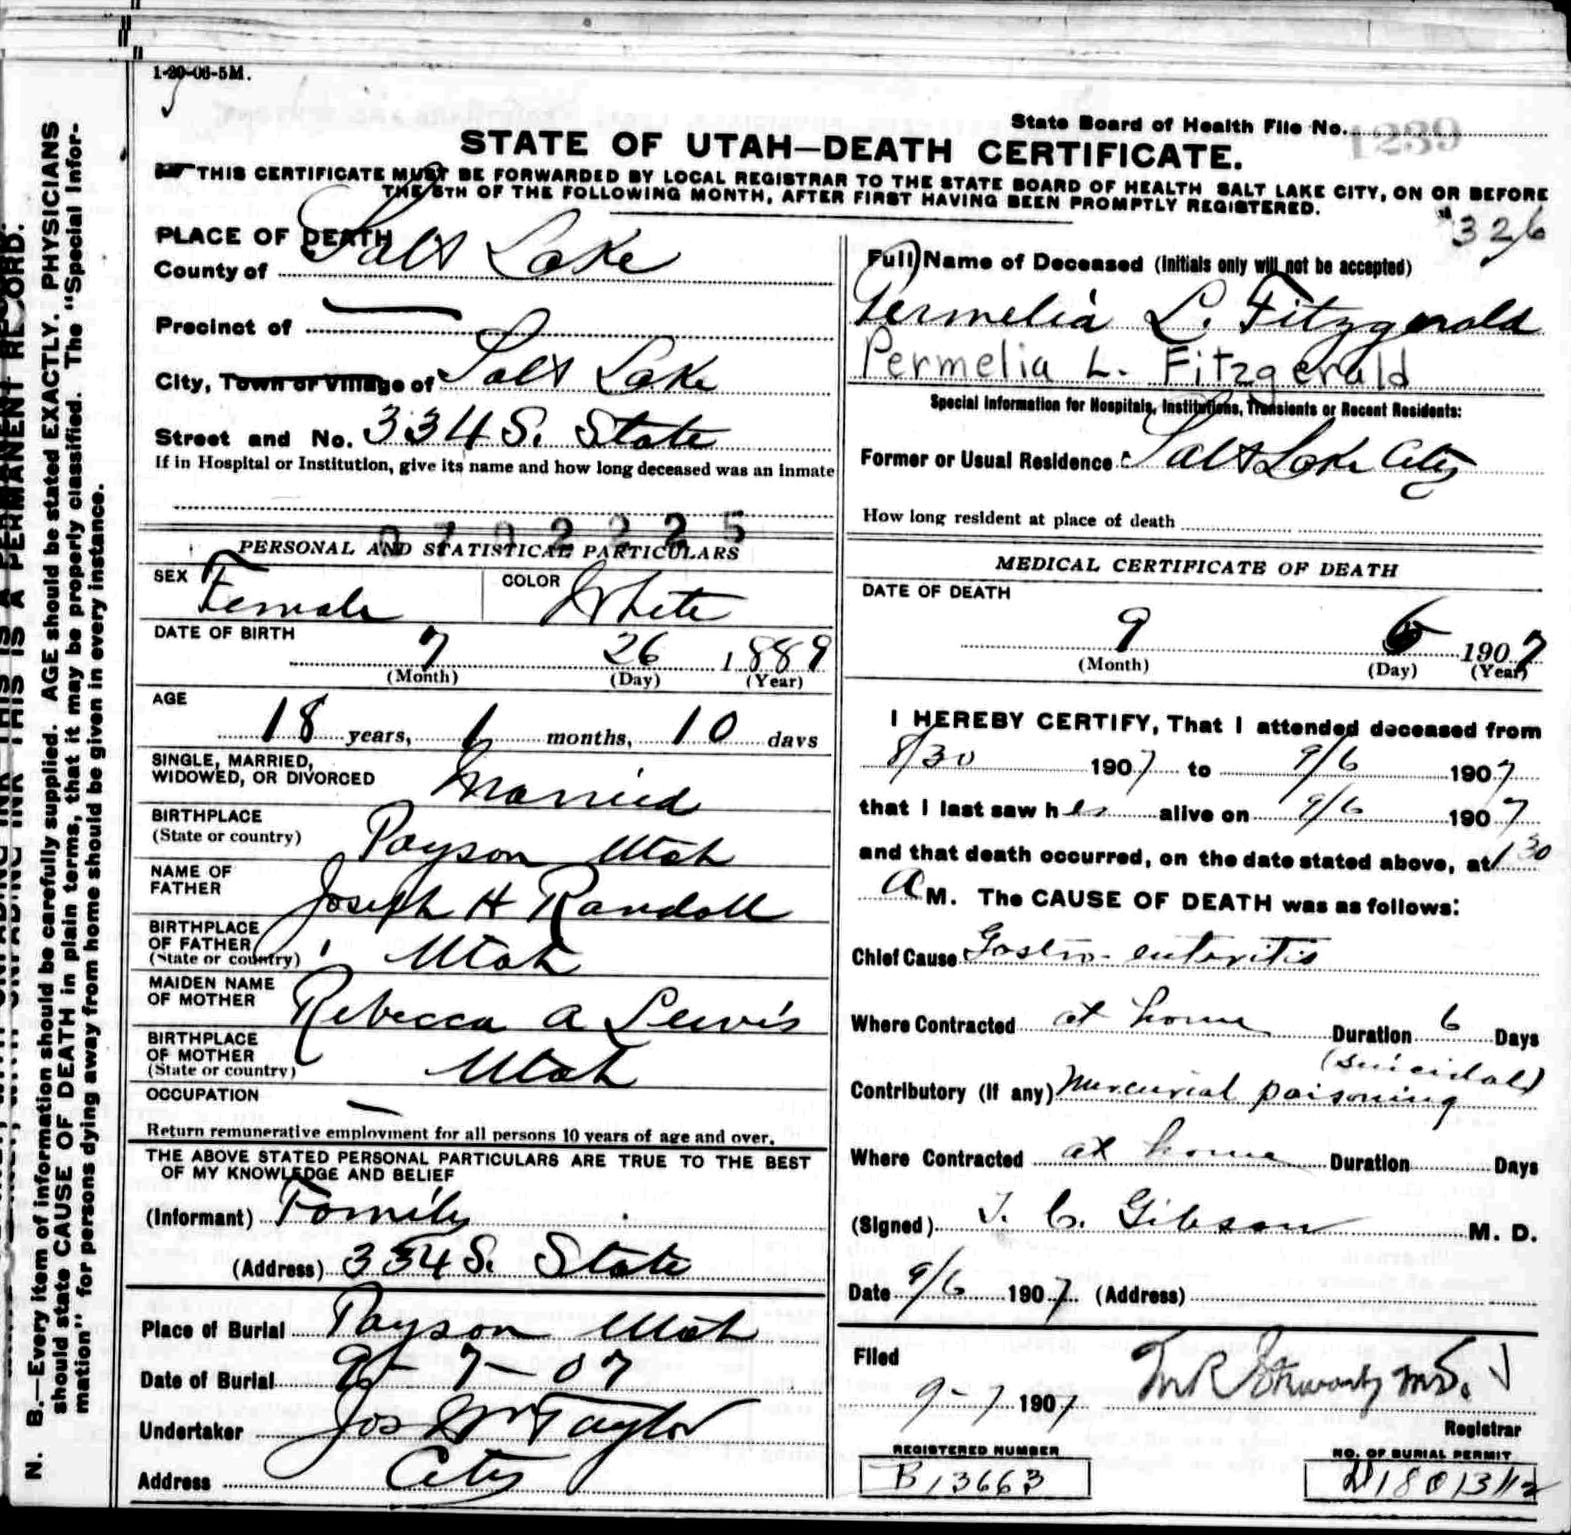 1-20-06-5M.
State Board of Health File No. 1239
STATE OF UTAH—DEATH CERTIFICATE.
THIS CERTIFICATE MUST BE FORWARDED BY LOCAL REGISTRAR TO THE STATE BOARD OF HEALTH SALT LAKE CITY, ON OR BEFORE
THE 5TH OF THE FOLLOWING MONTH, AFTER FIRST HAVING BEEN PROMPTLY REGISTERED.
326
PLACE OF DEATH
County of Salt Lake
Precinct of —
City, Town or Village of Salt Lake
Street and No. 334 S. State
If in Hospital or Institution, give its name and how long deceased was an inmate
0702225
PERSONAL AND STATISTICAL PARTICULARS
SEX Female COLOR White
DATE OF BIRTH
7 26 1889
(Month) (Day) (Year)
AGE
18 years, 1 months, 10 days
SINGLE, MARRIED,
WIDOWED, OR DIVORCED Married
BIRTHPLACE
(State or country) Payson Utah
NAME OF
FATHER Joseph H Randall
BIRTHPLACE
OF FATHER
(State or country) Utah
MAIDEN NAME
OF MOTHER Rebecca A Lewis
BIRTHPLACE
OF MOTHER
(State or country) Utah
OCCUPATION —
Return remunerative employment for all persons 10 years of age and over.
THE ABOVE STATED PERSONAL PARTICULARS ARE TRUE TO THE BEST
OF MY KNOWLEDGE AND BELIEF
(Informant) Family
(Address) 334 S. State
Place of Burial Payson Utah
Date of Burial 9-7-07
Undertaker Jos Wm Taylor
Address City
Full Name of Deceased (Initials only will not be accepted)
Permelia L. Fitzgerald
Permelia L. Fitzgerald
Special Information for Hospitals, Institutions, Transients or Recent Residents:
Former or Usual Residence Salt Lake City
How long resident at place of death
MEDICAL CERTIFICATE OF DEATH
DATE OF DEATH
9 6 1907
(Month) (Day) (Year)
I HEREBY CERTIFY, That I attended deceased from
8/30 1907 to 9/6 1907
that I last saw her alive on 9/6 1907
and that death occurred, on the date stated above, at 1 30
a M. The CAUSE OF DEATH was as follows:
Chief Cause Gastro-enteritis
Where Contracted at home Duration 6 Days
(suicidal)
Contributory (If any) Mercurial poisoning
Where Contracted at home Duration Days
(Signed) T. C. Gibson M. D.
Date 9/6 1907 (Address)
Filed
9-7 1907
Registrar
REGISTERED NUMBER
B13663
NO. OF BURIAL PERMIT
N. B.—Every item of information should be carefully supplied. AGE should be stated EXACTLY. PHYSICIANS
should state CAUSE OF DEATH in plain terms, that it may be properly classified. The "Special Infor-
mation" for persons dying away from home should be given in every instance.
THIS IS A PERMANENT RECORD.